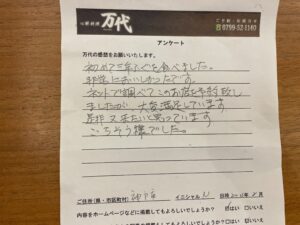 万代
ご予約・お問合せ
0799-52-1140
アンケート
万代の感想をお願いいたします。
初めて三年とらふぐを食べました。
非常においしかったです。
ネットで調べてこのお店を予約致し
ましたが、大変満足しています
是非又来たいと思っています
ごちそう様でした。
ご住所(県・市区町村) 神戸市 イニシャル N
内容をホームページなどに掲載してもよろしいでしょうか? ☑はい □いいえ
してもよろしいでしょうか? □はい □いいえ